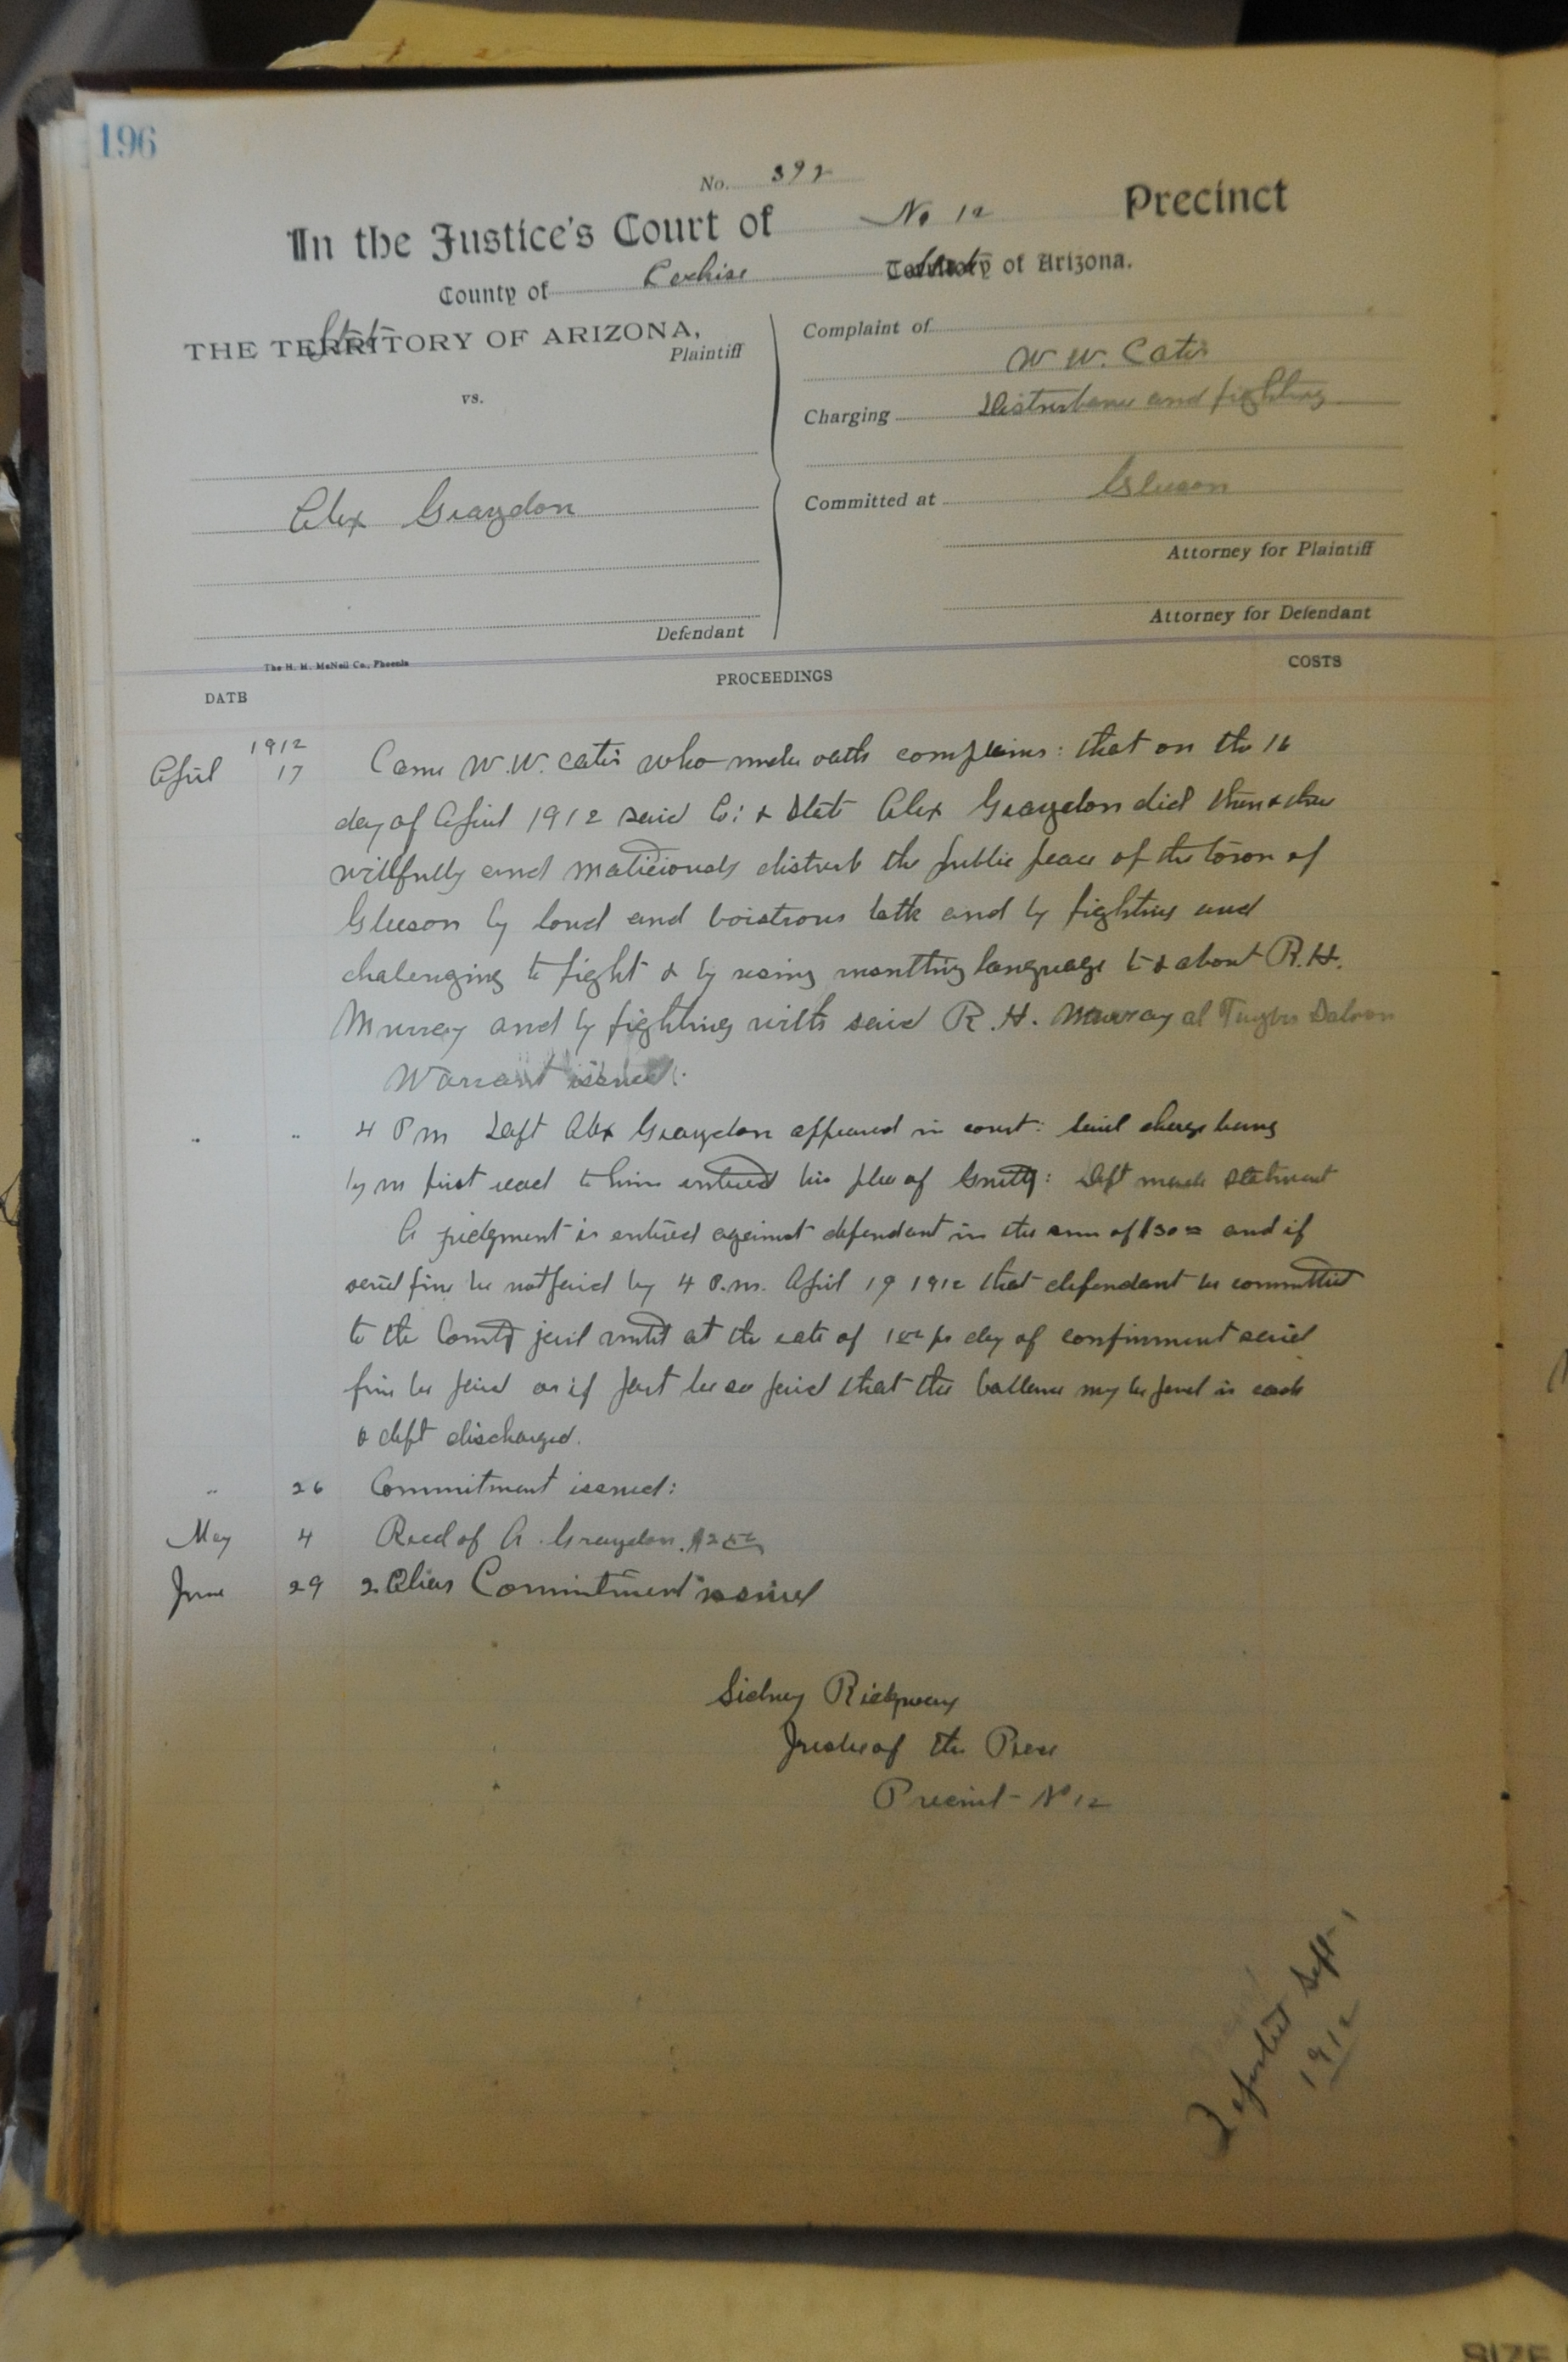 196
No. 392
In the Justice's Court of No 12 Precinct
County of Cochise State of Arizona.
THE State OF ARIZONA,
Plaintiff
vs.
Alex Graydon
Defendant
Complaint of
W. W. Cates
Charging Disturbance and fighting
Committed at Gleeson
Attorney for Plaintiff
Attorney for Defendant
The H. H. McNeil Co., Phoenix
DATE PROCEEDINGS COSTS
1912
April 17 Came W. W. Cates who under oath complains: that on the 16
day of April 1912 said Co: & State Alex Graydon did then & there
willfully and maliciously disturb the public peace of the town of
Gleeson by loud and boistrous talk and by fighting and
chalenging to fight & by using insulting language to & about R. H.
Murray and by fighting with said R. H. Murray at Saloon
Warrant issued.
" " 4 P m Deft Alex Graydon appeared in court: said charge being
by me first read to him entered his plea of Guilty: Deft made statment
A judgment is entered against defendant in the sum of $30 00 and if
said fine be not paid by 4 P.m. April 19 1912 that defendant be committed
to the County jail until at the rate of 1 00 per day of confinment said
fine be paid or if part be so paid that the ballance may be paid in cash
& deft discharged.
" 26 Commitment issued:
May 4 Recd of A. Graydon.
June 29 2. Alias Commitment issued
Sidney Ridgway
Justice of the Peace
Precinct No 12
Reported Sept 1
1912
SIZE